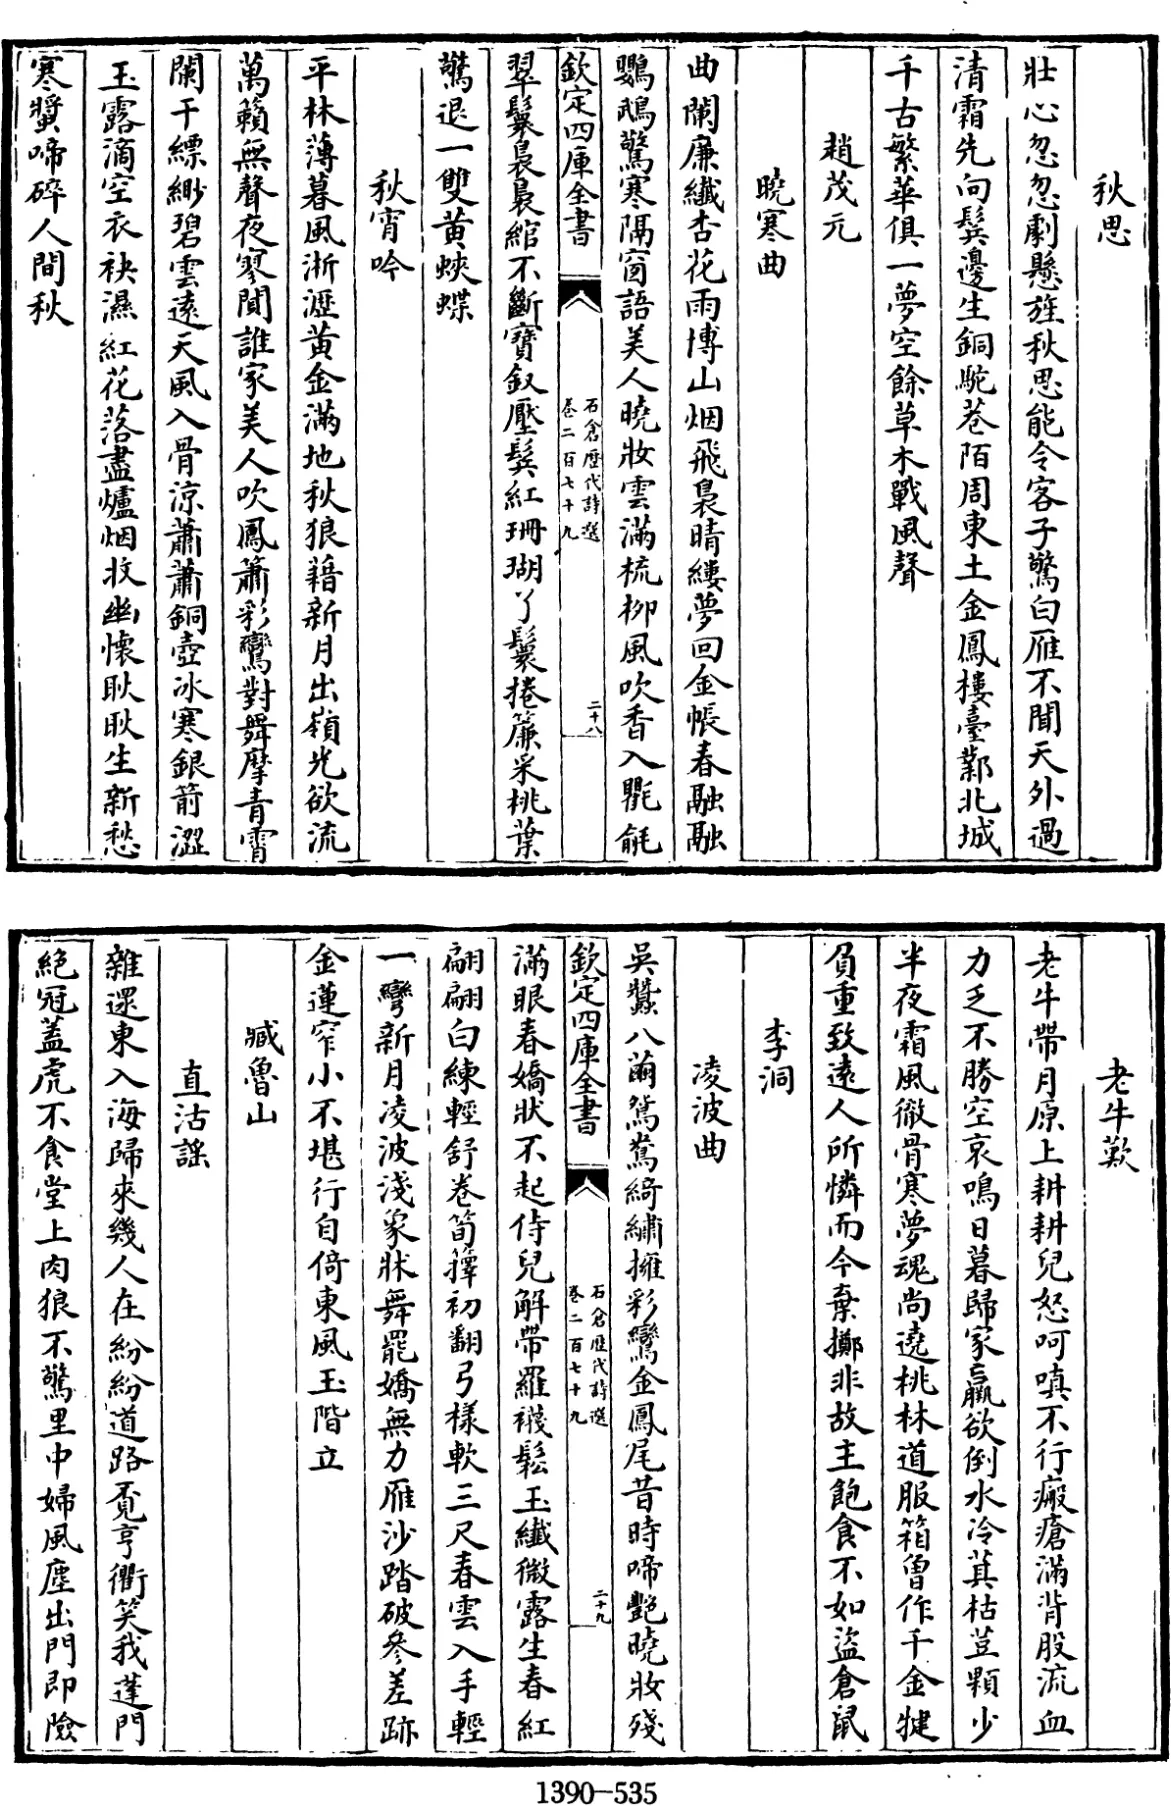 秋思
壯心忽忽劇懸旌秋思能令客子驚白雁不聞天外過
清霜先向鬂邊生銅駝巷陌周東土金鳳樓臺鄴北城
千古繁華俱一夢空餘草木戰風聲
趙茂元
曉寒曲
曲闌廉纖杏花雨博山烟飛裊晴縷夢回金帳春融融
鸚鵡驚寒隔窗語美人曉妝雲滿梳柳風吹香入氍毹
欽定四庫全書
石倉歷代詩選
卷二百七十九
二十八
翠鬟裊裊綰不斷寶釵壓鬂紅珊瑚丫鬟捲簾采桃葉
驚退一雙黄蛺蝶
秋宵吟
平林薄暮風淅瀝黄金滿地秋狼藉新月出嶺光欲流
萬籟無聲夜寥闃誰家美人吹鳳簫彩鸞對舞摩青霄
闌干縹緲碧雲遠天風入骨涼蕭蕭銅壺冰寒銀箭澀
玉露滴空衣袂濕紅花落盡爐烟收幽懷耿耿生新愁
寒螿啼碎人間秋
老牛歎
老牛帶月原上耕耕兒怒呵嗔不行瘢瘡滿背股流血
力乏不勝空哀鳴日暮歸家羸欲倒水冷萁枯荳顆少
半夜霜風徹骨寒夢魂尚遶桃林道服箱曾作千金犍
負重致遠人所憐而今棄擲非故主飽食不如盜倉鼠
李洞
凌波曲
吳蠶八繭鴛鴦綺繡擁彩鸞金鳳尾昔時啼艷曉妝殘
欽定四庫全書
石倉歷代詩選
卷二百七十九
二十九
滿眼春嬌狀不起侍兒解帶羅襪鬆玉纖微露生春紅
翩翩白練輕舒卷筍籜初翻弓樣軟三尺春雲入手輕
一彎新月凌波淺象牀舞罷嬌無力雁沙踏破參差跡
金蓮窄小不堪行自倚東風玉階立
臧魯山
直沽謡
雜遝東入海歸來幾人在紛紛道路覓亨衢笑我蓬門
絶冠蓋虎不食堂上肉狼不驚里中婦風塵出門即險
1390-535